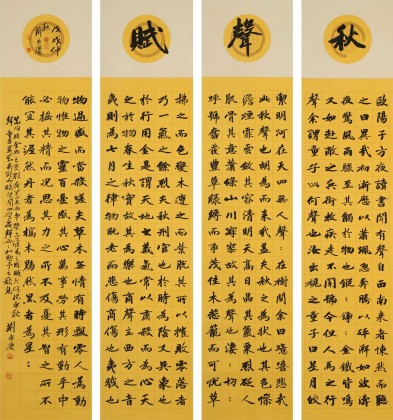 秋
聲
賦
戊戌仲
秋
歐陽子方夜讀書聞有聲自西南來者悚然而聽
之曰異哉初淅瀝以蕭颯忽奔騰以砰湃如波濤
夜驚風雨驟至其觸於物也鏦:錚:金鐵皆鳴
又如赴敵之兵銜枚疾走不聞號令但聞人馬之行
聲余謂童子此何聲也汝出視之童子曰星月皎
潔明河在天四無人聲:在樹間余曰噫嘻悲哉
此秋聲也胡為而來哉蓋夫秋之為狀也其色慘
淡煙霏雲斂其容清明天高日晶其氣慄冽砭人
肌骨其意蕭條山川寂寥故其為聲也淒:切:
呼號憤發豐草綠縟而爭茂佳木蔥蘢而可悅草
拂之而色變木遭之而葉脫其所以摧敗零落者
乃一氣之餘烈夫秋刑官也於時為陰又兵象也
於行用金是謂天地之義氣常以肅殺而為心天
之於物春生秋實故其為樂也商聲主西方之音
夷則為七月之律物既老而悲傷商傷也夷戮也
物過盛而當殺嗟夫草木無情有時飄零人為動
物惟物之靈百憂感其心萬事勞其形有動乎中
必搖其精而況思其力之所不及憂其智之所不
能宜其渥然丹者為槁木黟然黑者為星: